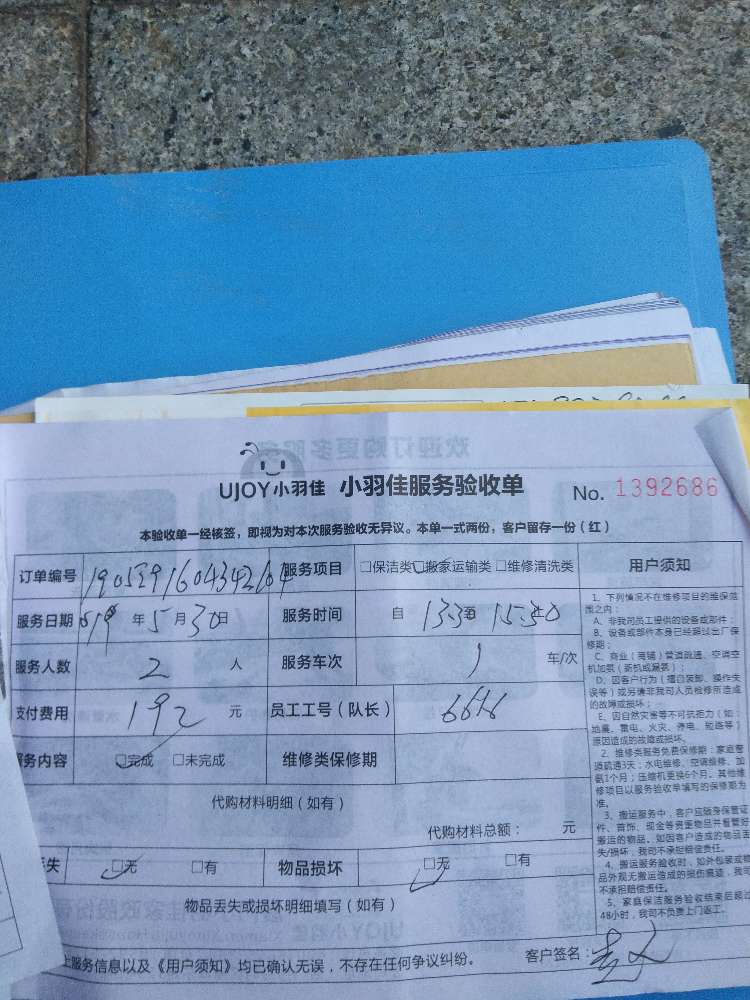 UJOY小羽佳 小羽佳服务验收单 No. 1392686
本验收单一经核签，即视为对本次服务验收无异议。本单一式两份，客户留存一份（红）
订单编号 服务项目 □保洁类 □搬家运输类 □维修清洗类 用户须知
服务日期 年 5 月 30 日 服务时间 自 13:30 至 15:30
服务人数 2 人 服务车次 1 车/次
支付费用 192 元 员工工号（队长）
务内容 □完成 □未完成 维修类保修期
代购材料明细（如有）
代购材料总额： 元
失 □无 □有 物品损坏 □无 □有
物品丢失或损坏明细填写（如有）
服务信息以及《用户须知》均已确认无误，不存在任何争议纠纷。 客户签名：
1、下列情况不在维修项目的维保范
围之内：
A、非我司员工提供的设备或部件；
B、设备或部件本身已经超过出厂保
修期；
C、商业（商铺）管道疏通、空调空
机加氨（新机或漏氨）；
D、因客户行为（擅自装卸、操作失
误等）或另请非我司人员检修所造成
的故障或损坏；
E、因自然灾害等不可抗拒力（如：
地震、雷电、火灾、停电、短路等）
原因造成的故障或损坏。
2、维修类服务免费保修期：家庭管
道疏通3天；水电维修、空调维修、加
氨1个月；压缩机更换6个月。其他维
修项目以服务验收单填写的保修期为
准。
3、搬运服务中，客户应随身保管证
件、首饰、现金等贵重物品并看管好
搬运的物品。如因客户造成的物品丢
失/损坏，我司不承担赔偿责任。
4、搬运服务验收时，如外包装或物
品外观无搬运造成的损伤痕迹，我司
不承担赔偿责任。
5、家庭保洁服务验收结束后超过
48小时，我司不负责上门返工。